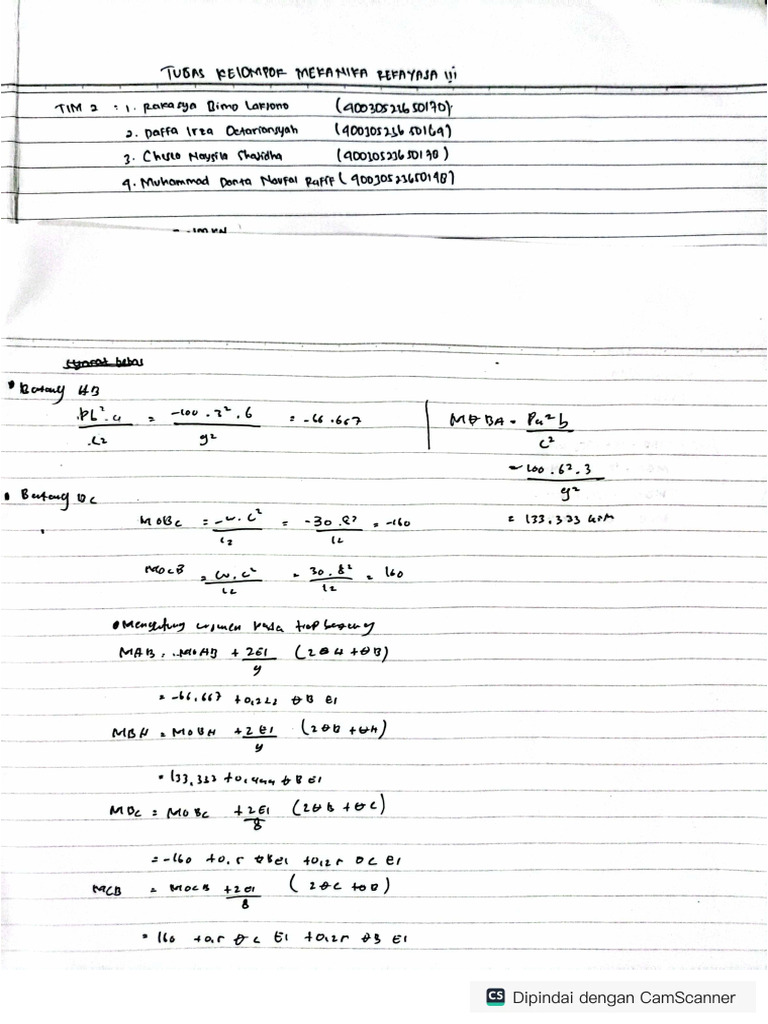 TUGAS KELOMPOK MEKANIKA REKAYASA III
TIM 2 : 1. Rakasya Bimo Laksono (40030521650170)
2. Daffa Irza Octariansyah (40030523650169)
3. Chusco Naysila Shavidha (40030523650148)
4. Muhammad Danta Naufal Rafif (40030523650148)
- 100 kN
Syarat batas
• Batang AB
Pb².a / L² = -100 . 3² . 6 / 9² = -66.667
M0BA = Pa²b / L²
= 100 . 6² . 3 / 9²
= 133.333 kNM
• Batang BC
M0BC = -w. L² / 12 = -30 . 8² / 12 = -160
M0CB = w. L² / 12 = 30 . 8² / 12 = 160
• Menghitung momen pada tiap batang
MAB = M0AB + 2EI / 9 (2θA + θB)
= -66,667 + 0,222 θB EI
MBA = M0BA + 2EI / 9 (2θB + θA)
= 133,333 + 0,444 θB EI
MBC = M0BC + 2EI / 8 (2θB + θC)
= -160 + 0,5 θB EI + 0,25 θC EI
MCB = M0CB + 2EI / 8 (2θC + θB)
= 160 + 0,5 θC EI + 0,25 θB EI
CS Dipindai dengan CamScanner